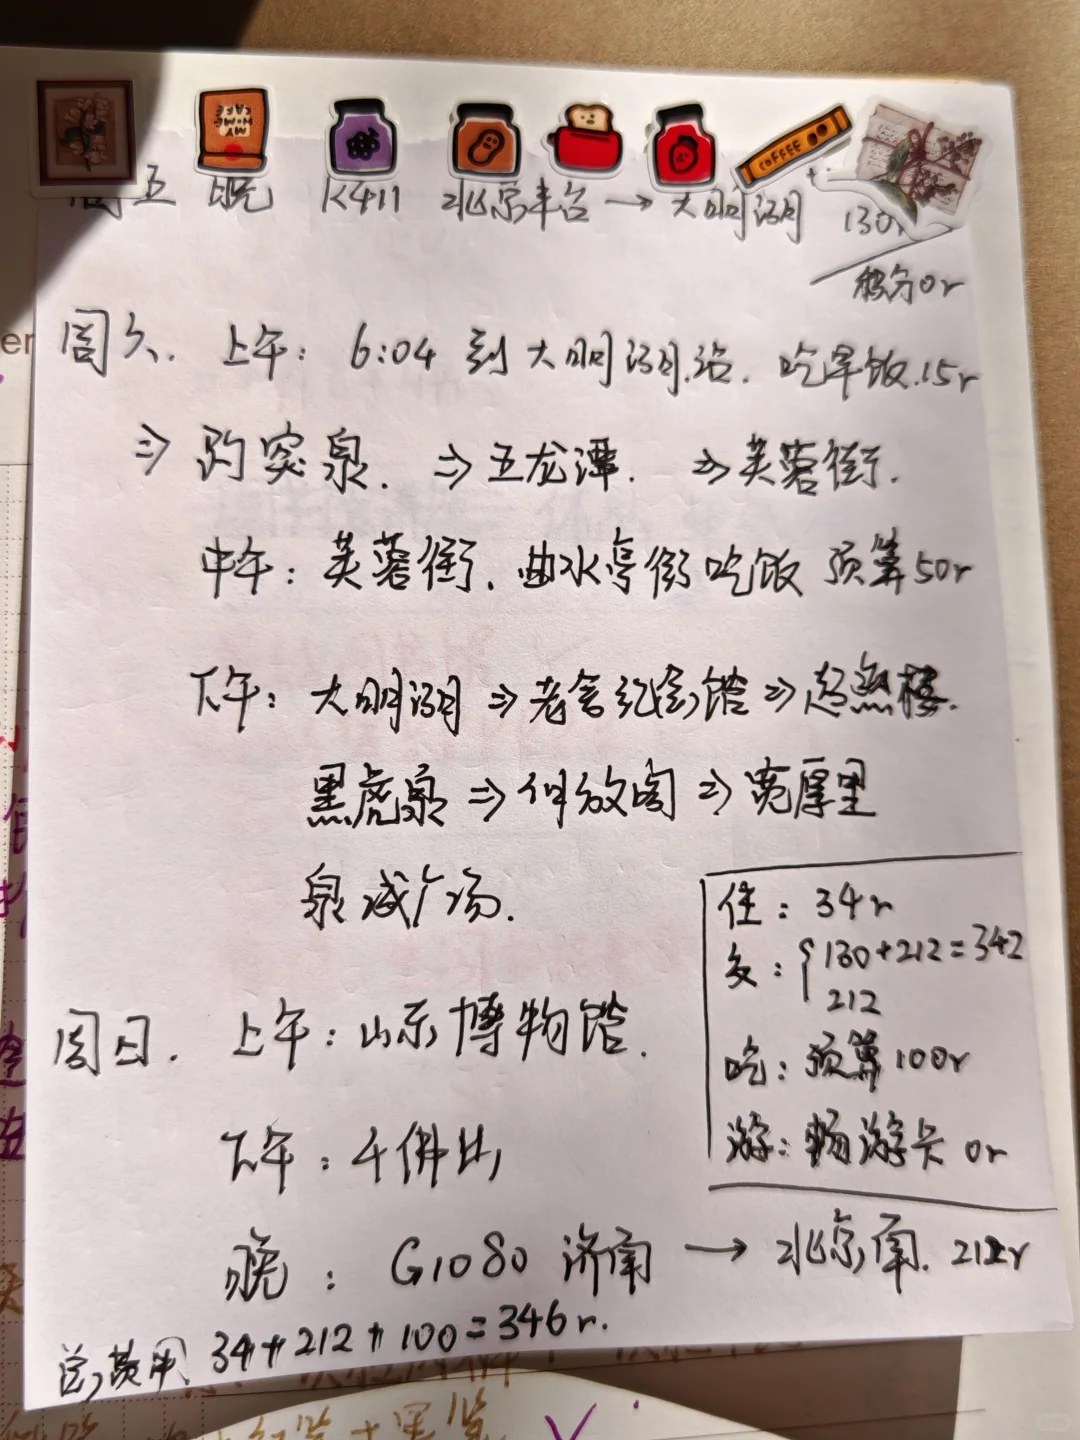 MY HOME CAFE
COFFEE
周五 晚 K411 北京丰台 → 大明湖 130r
积分0r
周六. 上午: 6:04 到大明湖站. 吃早饭.15r
⇒ 趵突泉. ⇒ 五龙潭. ⇒ 芙蓉街.
中午: 芙蓉街. 曲水亭街吃饭 预算50r
下午: 大明湖 ⇒ 老舍纪念馆 ⇒ 超然楼.
黑虎泉 ⇒ 解放阁 ⇒ 宽厚里
泉城广场.
住: 34r
交: { 130+212=342
212
吃: 预算100r
游: 畅游卡 0r
周日. 上午: 山东博物馆.
下午: 千佛山
晚: G1080 济南 → 北京南. 212r
总费用 34+212+100=346r.